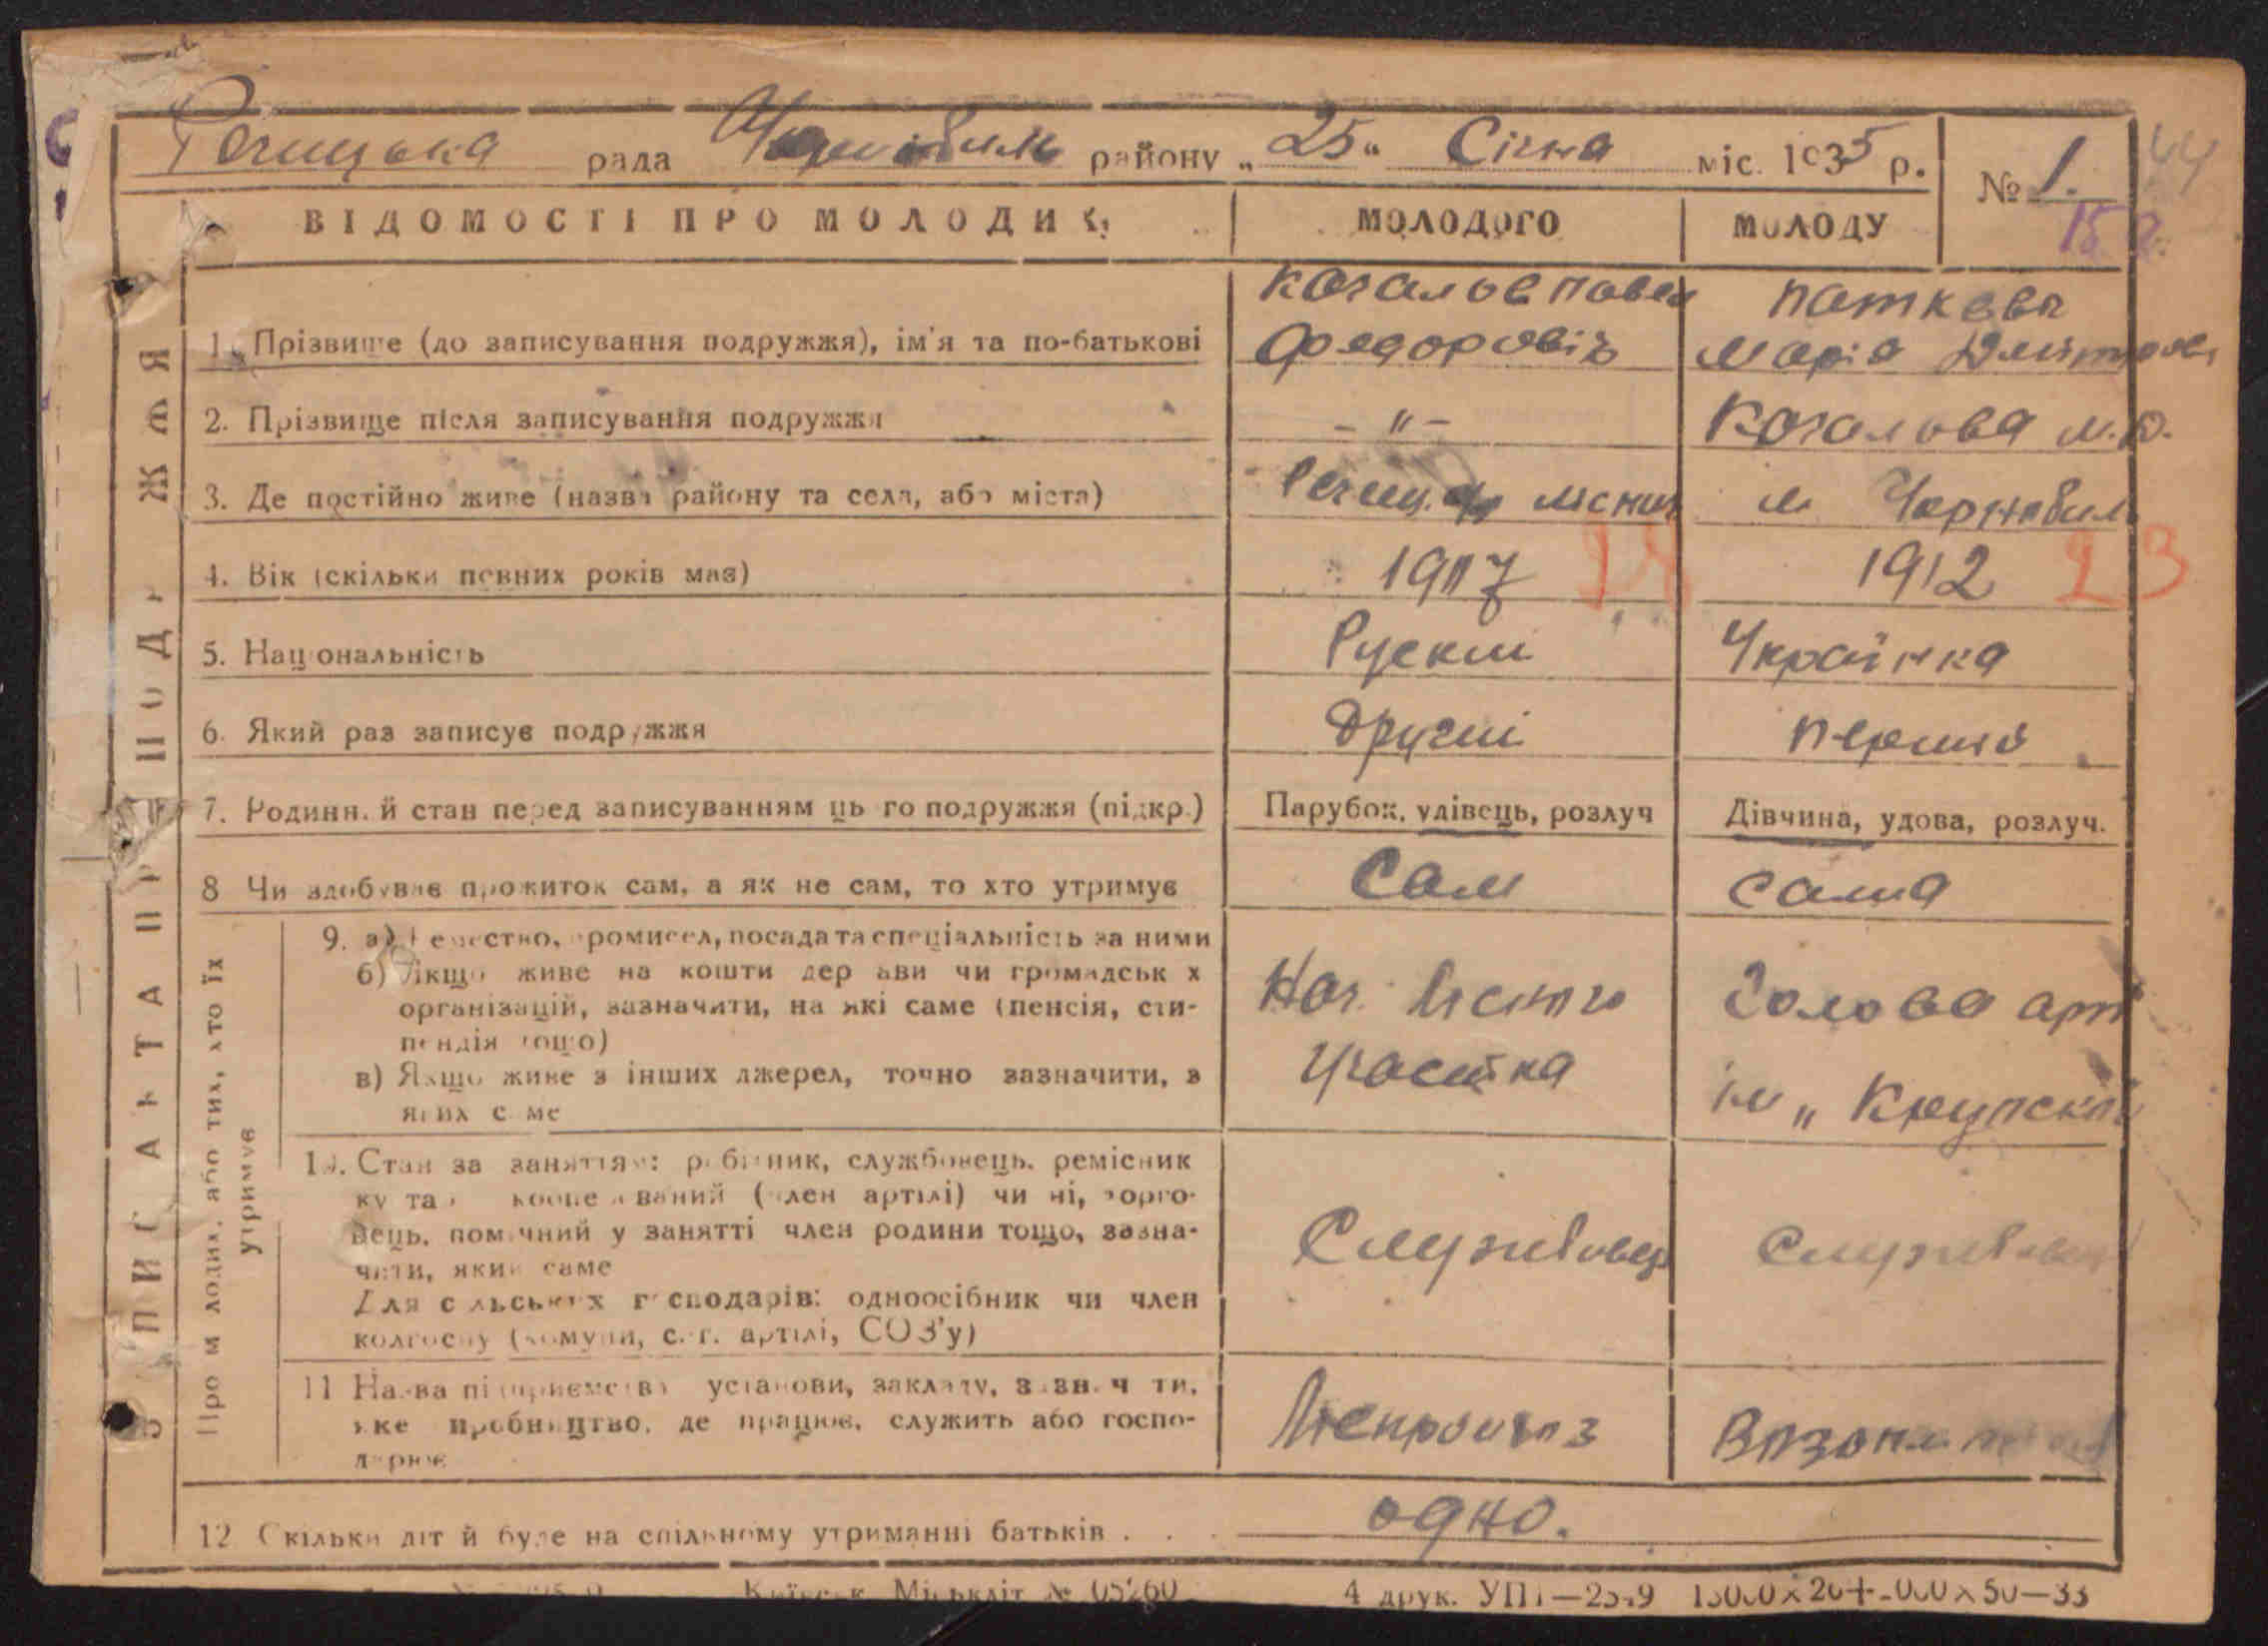 Речицька рада Чорнобиль району „25" Січня міс. 1935 р. № 1. 44
ВІДОМОСТІ ПРО МОЛОДИХ МОЛОДОГО МОЛОДУ
ЗАПИС АКТА ПРО ПОДРУЖЖЯ
Качалов Павел
1. Прізвище (до записування подружжя), ім'я та по-батькові Федоровіч Марія Дмитров
2. Прізвище після записування подружжя – " – Качалова М.Д.
3. Де постійно живе (назва району та села, або міста) Речиц. м Чорнобиль
4. Вік (скільки повних років має) 1907 28 1912 23
5. Національність Руский Українка
6. Який раз записує подружжя Другий перший
7. Родинний стан перед записуванням цього подружжя (підкр.) Парубок, удівець, розлуч Дівчина, удова, розлуч.
8 Чи здобував прожиток сам, а як не сам, то хто утримує Сам сама
Про молодих, або тих, хто їх утримує
9. а) Ремество, промисел, посада та спеціальність за ними
б) Якщо живе на кошти держави чи громадських
організацій, зазначити, на які саме (пенсія, сти-
пендія тощо)
в) Якщо живе з інших джерел, точно зазначити, з
яких саме
Нач. Лісного
участка
Голова арт
ім „Крупской
10. Стан за заняттям: робітник, службовець, ремісник
вець, помічний у занятті член родини тощо, зазна-
чити, який саме
Для сільських господарів: одноосібник чи член
колгоспу (комуни, с.-г. артілі, СОЗ'у)
Службовець
Службовець
11 Назва підприємства установи, закладу, зазначити,
яке виробництво, де працює, служить або госпо-
дарює
Ліспромгоз
12 Скільки дітей буде на спільному утриманні батьків . . . одно.
Київськ. Міськліт № 05260 4 друк. УПП—